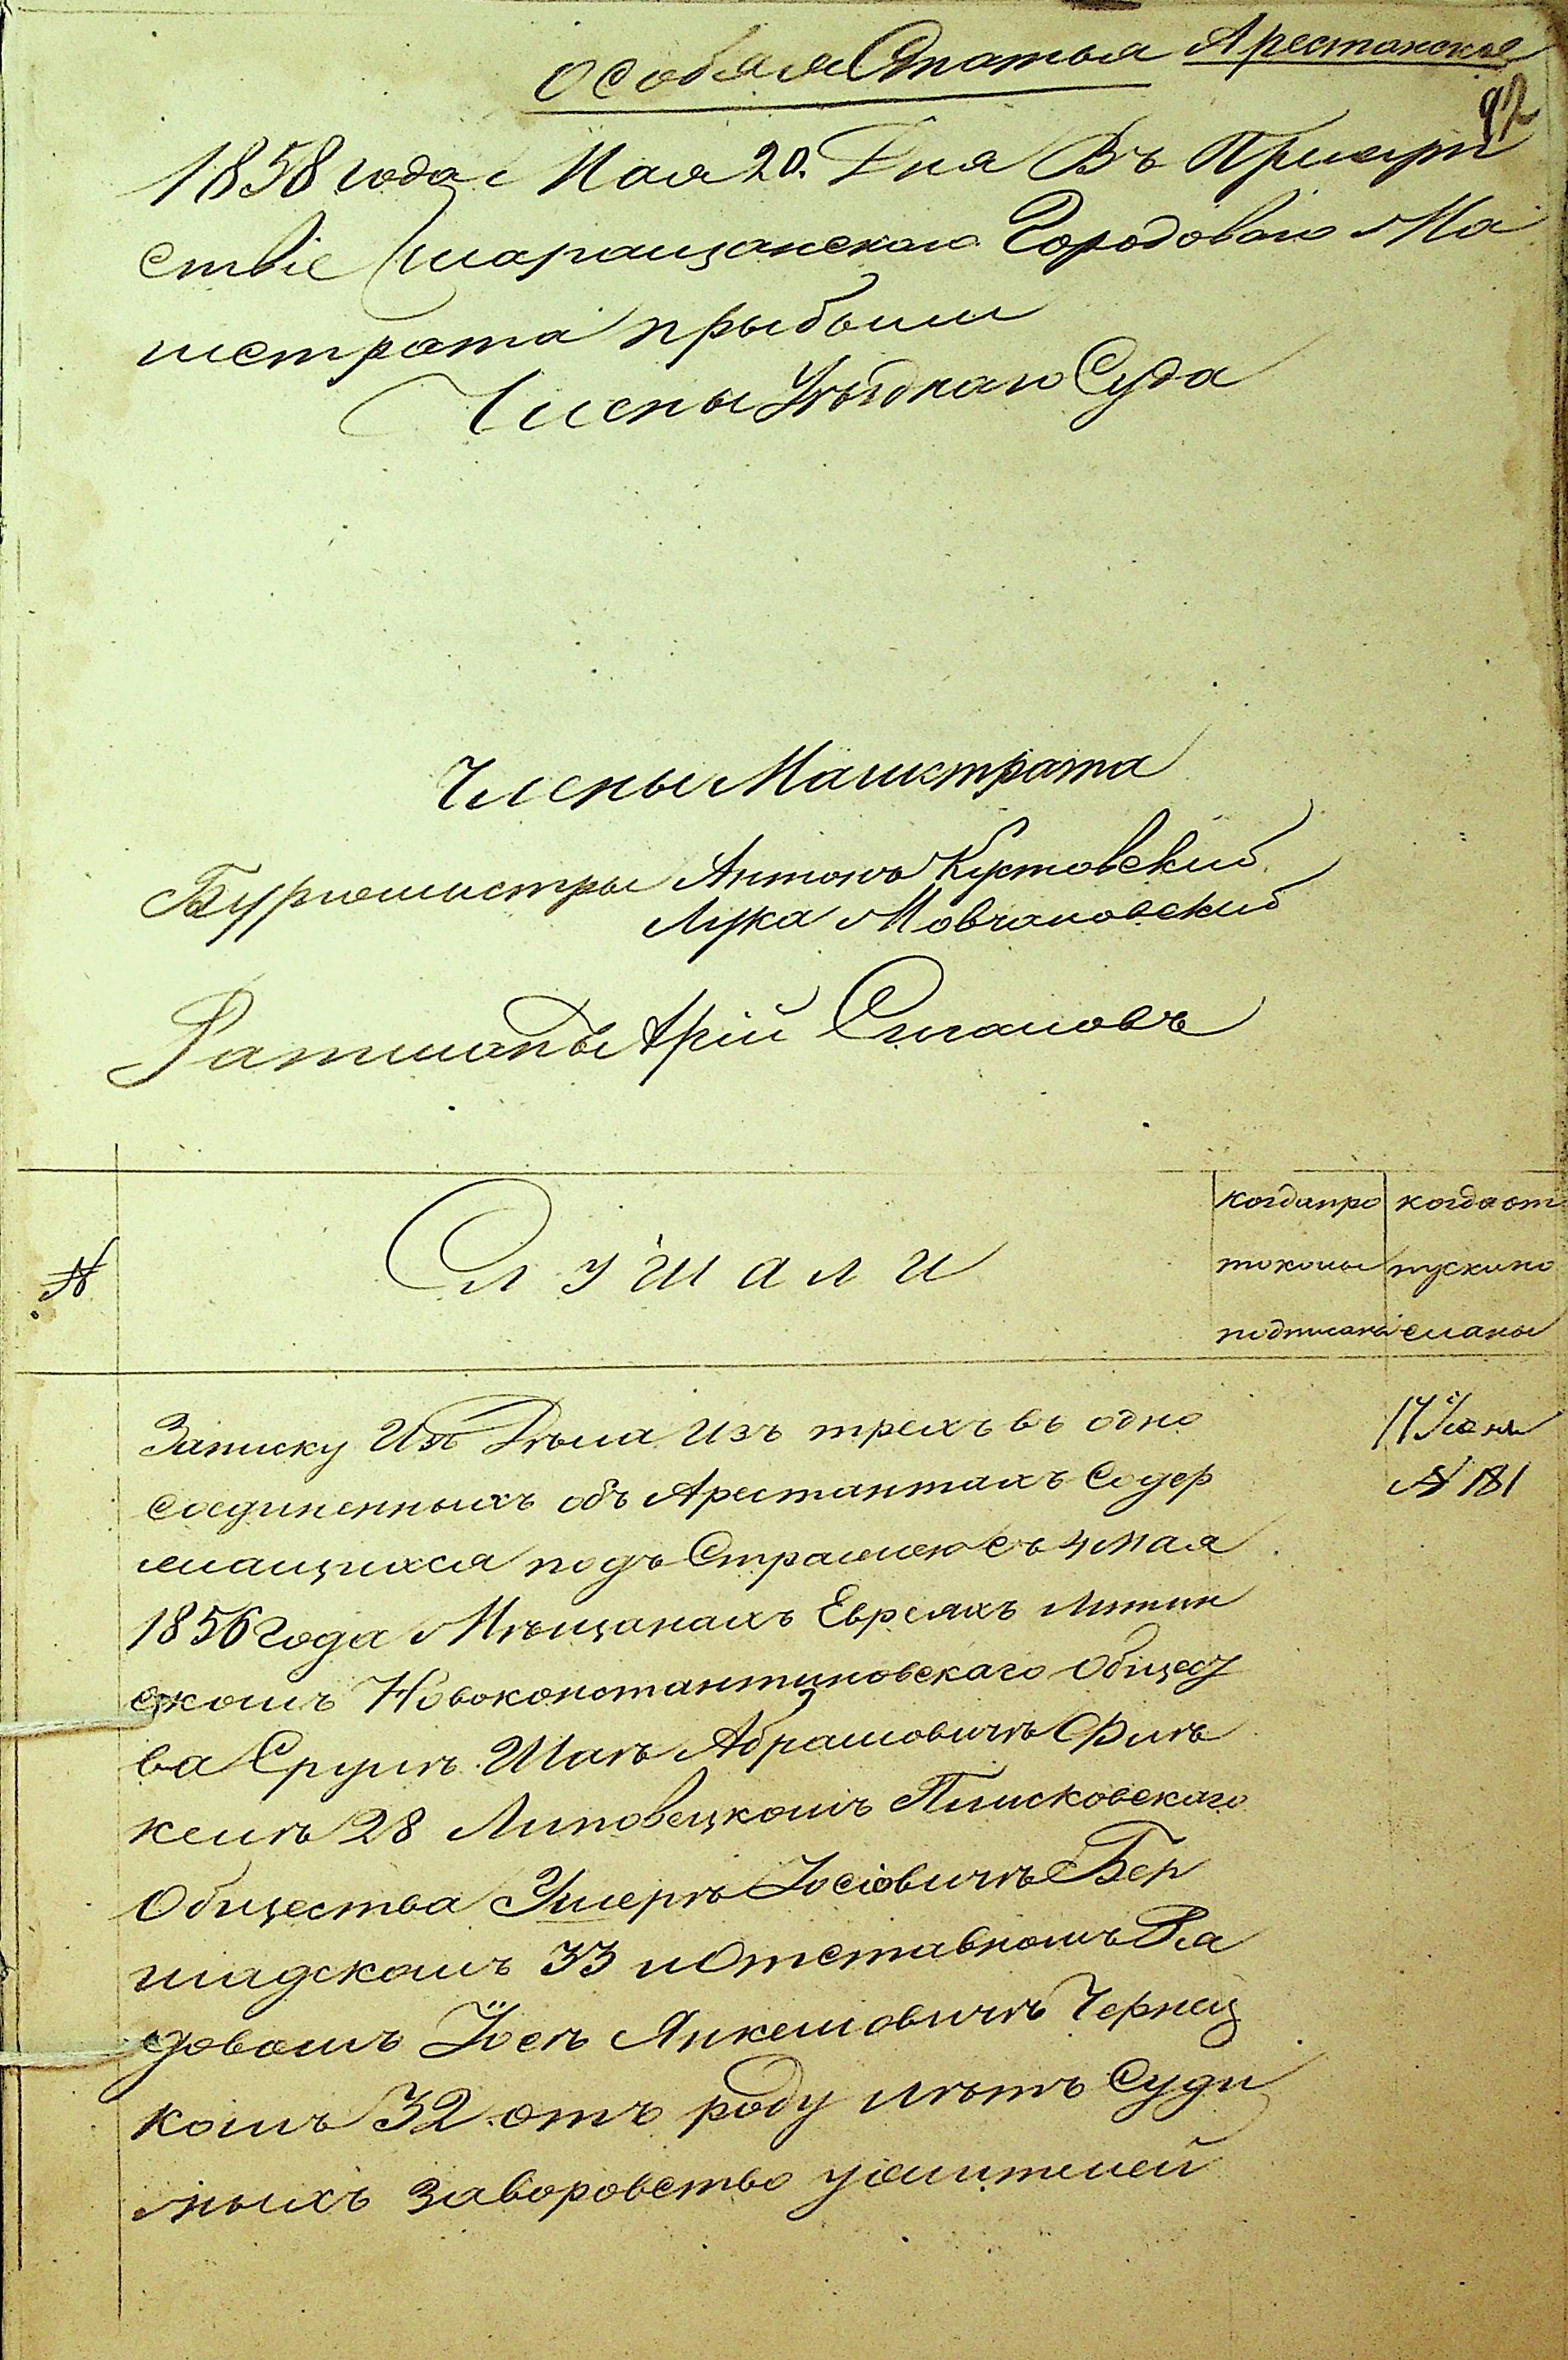 Особая Статья Арестанская
92
1858 года Мая 20. Дня Въ Присут
ствіе Таращанскаго Городоваго Ма
гистрата прыбыли
Члены Уѣзднаго Суда
Члены Магистрата
Бургомистры Антонъ Кустовскій
Лука Мовчановский
Ратманъ Арій Симановъ
№
Слушали
когда про
токолы
подписаны
когда от
пуски по
сланы
Записку Изъ Дѣла Изъ трехъ въ одно
соединенныхъ объ Арестантахъ Содер
жащихся подъ Стражею съ 4 мая
1856 года Мѣщанахъ Евреяхъ Литин
скомъ Новоконстантиновскаго Общест
ва Срулѣ Шаѣ Абрамовичѣ Финъ
келѣ 28 Липовецкомъ Плисковскаго
Общества Ушерѣ Іосіовичѣ Бер
шадскомъ 33 и Отставномъ Ря
довомъ Іосѣ Янкелювичѣ Чернец
комъ 32 отъ роду лѣтъ Суди
мыхъ за воровство у жителей
17 Іюня
№ 181